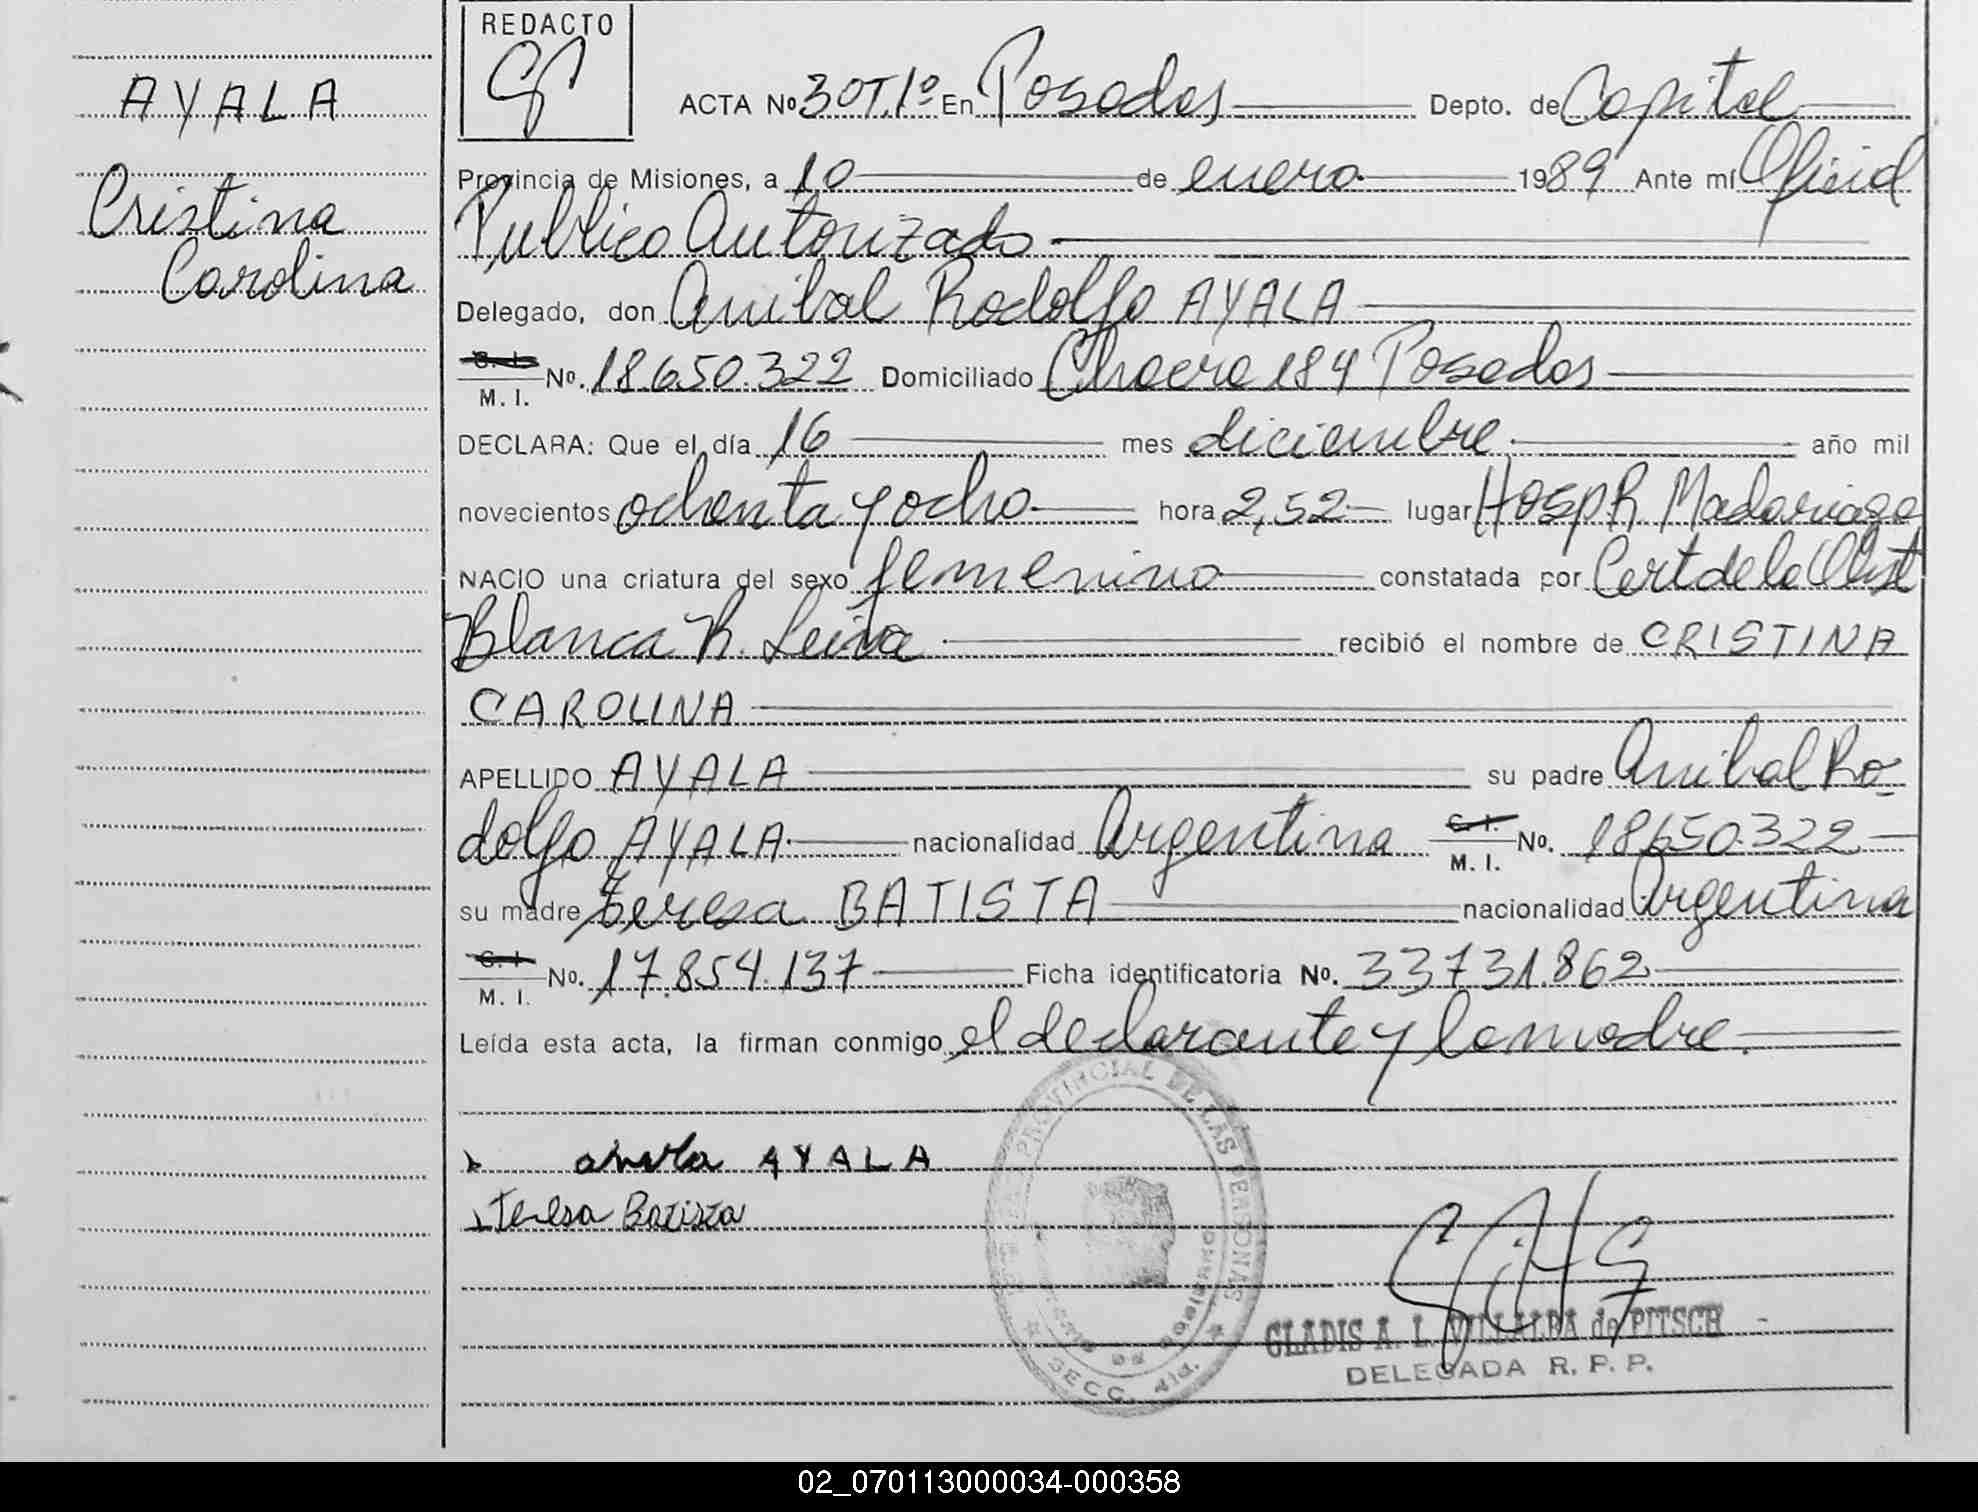 AYALA
Cristina
Carolina
REDACTO
ACTA Nº 30T.1º En Posadas Depto. de Capital
Provincia de Misiones, a 10 de enero 1989 Ante mí Oficial
Publico Autorizado
Delegado, don Anibal Rodolfo AYALA
C. I.
M. I. No. 18.650.322 Domiciliado Chacra 184 Posadas
DECLARA: Que el día 16 mes diciembre año mil
novecientos ochenta y ocho hora 2,52 lugar Hosp R Madariaga
NACIO una criatura del sexo femenino constatada por Cert de la Obst
Blanca R. Leiva recibió el nombre de CRISTINA
CAROLINA
APELLIDO AYALA su padre Anibal Ro
dolfo AYALA nacionalidad Argentina C. I.
M. I. No. 18650.322
su madre Teresa BATISTA nacionalidad Argentina
C. I.
M. I. No. 17.854.137 Ficha identificatoria No. 33731.862
Leída esta acta, la firman conmigo el declarante y la madre.
AYALA
Teresa Batista
PROVINCIAL DE LAS PERSONAS
SECC. 4ta.
GLADIS A. L. VILLALBA de PITSCH
DELEGADA R. P. P.
02_070113000034-000358